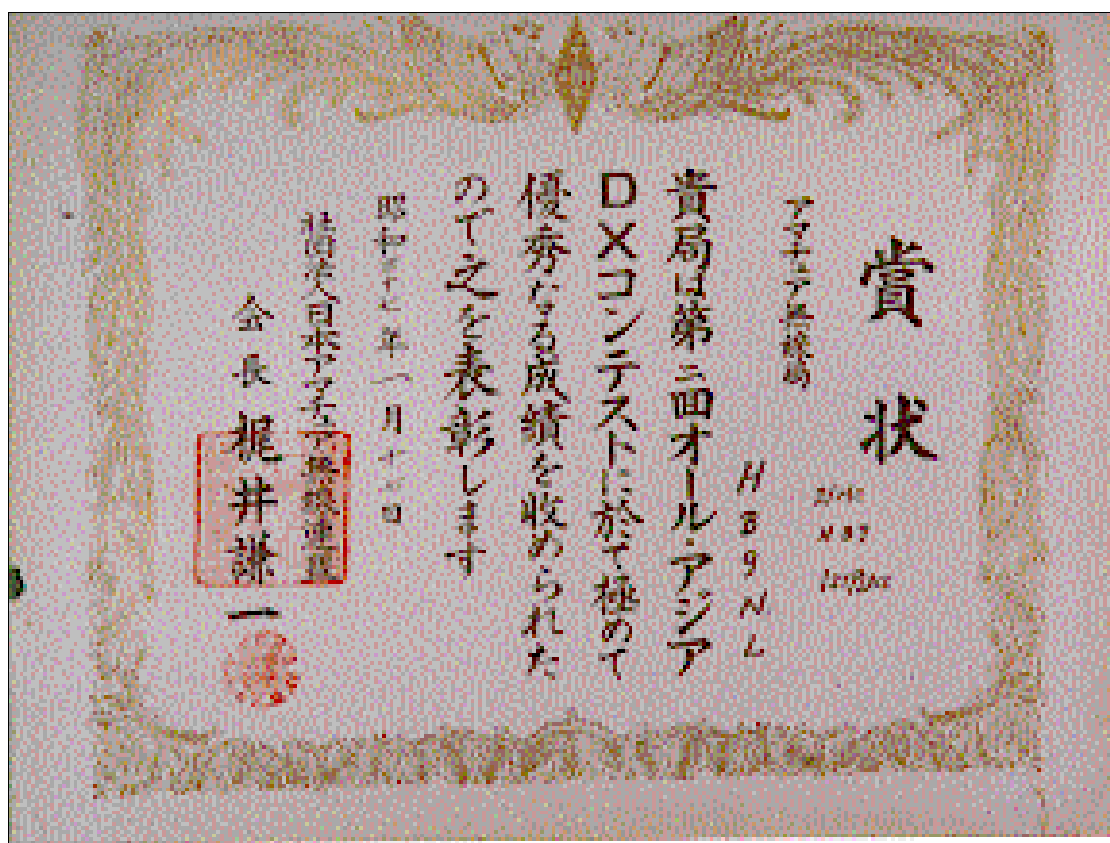 賞状
アマチュア無線局
HB9NL
貴局は第二回オール・アジア
DXコンテストに於て極めて
優秀なる成績を収められた
ので之を表彰します
昭和三七年一月十七日
社団法人日本アマチュア無線連盟
会長 梶井謙一